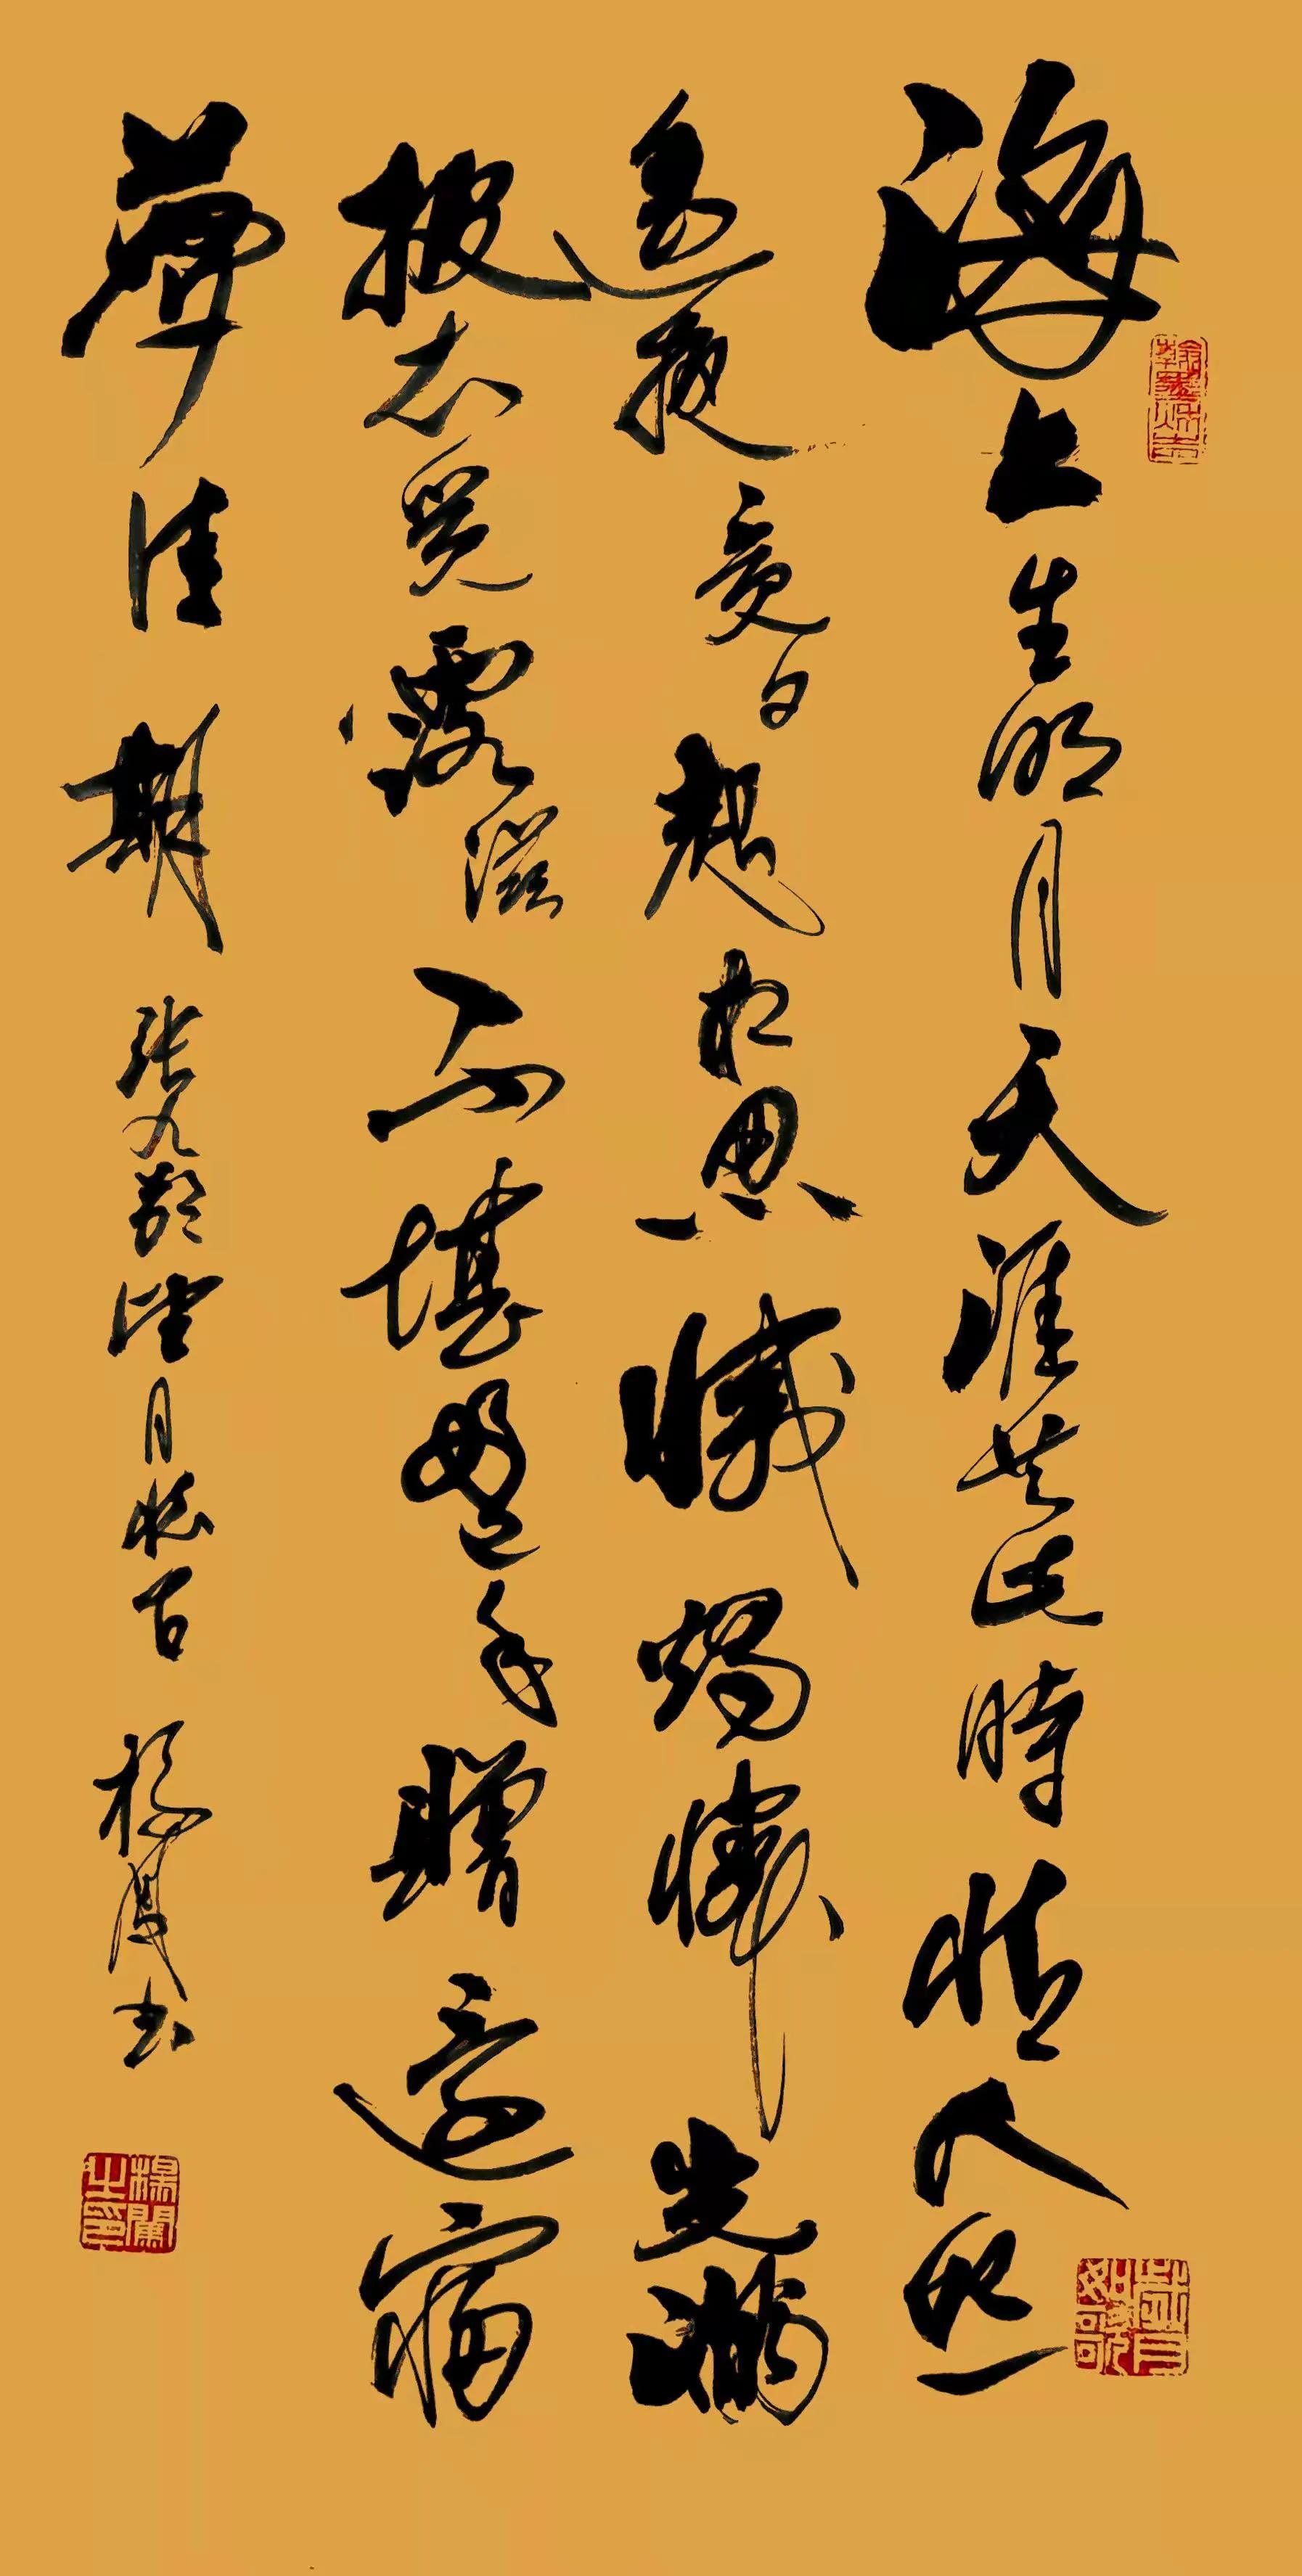 海上生明月天涯共此時情人怨
遙夜竟夕起相思滅燭憐光滿
披衣覺露滋不堪盈手贈還寢
夢佳期 張九齡望月懷古 楊書
歲月如歌